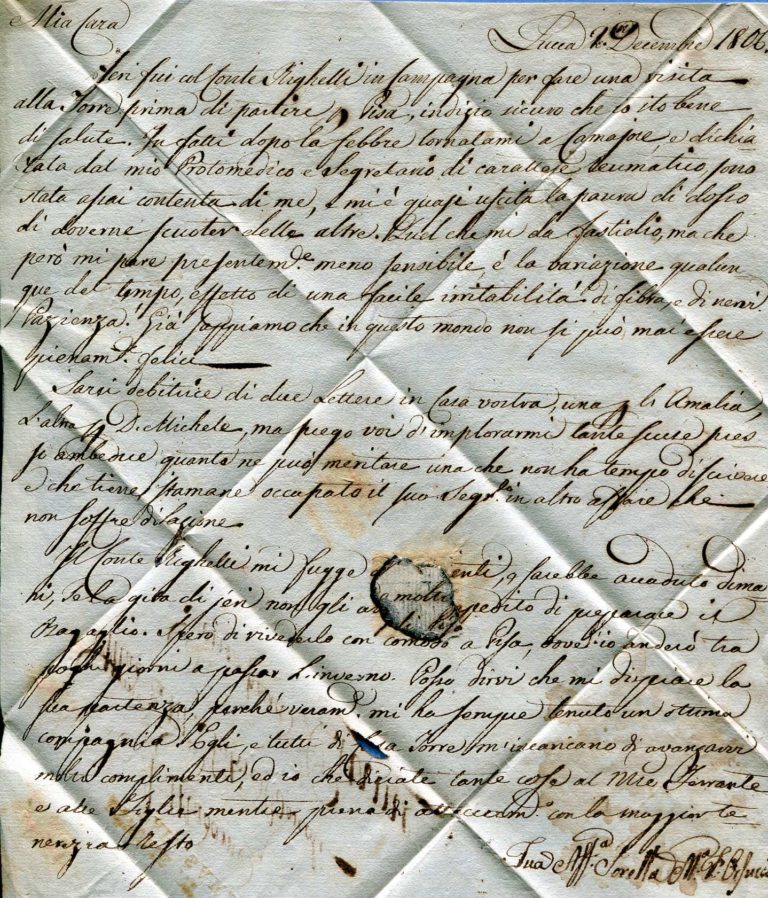 Mia Cara
Lucca 2 Decembre 1806.
Jeri fui col Conte Righetti in Campagna per fare una visita
alla Torre prima di partire p Pisa, indizio sicuro che io sto bene
di salute. In fatti dopo la febbre tornatami a Camajore, e dichia
rata dal mio Protomedico e Segretario di carattere reumatico, sono
stata assai contenta di me, e mi è quasi uscita la paura di dosso
di doverne scuoter delle altre. Quel che mi da fastidio, ma che
però mi pare presentem.e meno sensibile, é la variazione qualun
que del tempo, effetto di una facile irritabilitá di fibra e di nervi.
Pazienza. Giá sappiamo che in questo mondo non si può mai essere
pienam.e felici
Sarei debitrice di due Lettere in Casa vostra, una p l' Amalia,
L'altra p D. Michele, ma prego voi d'implorarmi tante scuse pres
so ambedue quanto ne può meritare una che non ha tempo di scrivere
e che tiene stamane occupato il suo Segr.o in altro affare che
non soffre dilazione
Il Conte Righetti mi fugge enti, e sarebbe accaduto dima
ni, se la gita di jeri non gli molto pedito di preparare il
Bagaglio. Spero di rivederlo con comodo a Pisa, dove io anderó tra
pochi giorni a passar L'inverno. Posso dirvi che mi dispiace la
sua partenza perché veram.e mi ha sempre tenuto un ottima
compagnia. Egli, e tutti di la Torre m'incaricano di avanzarvi
molti complimenti, ed io che diciate tante cose al Mse Ferrante
e alle Figlie mentre piena di attaccam.o con la maggior te
nerezza Resto
Tua Aff.a Sorella